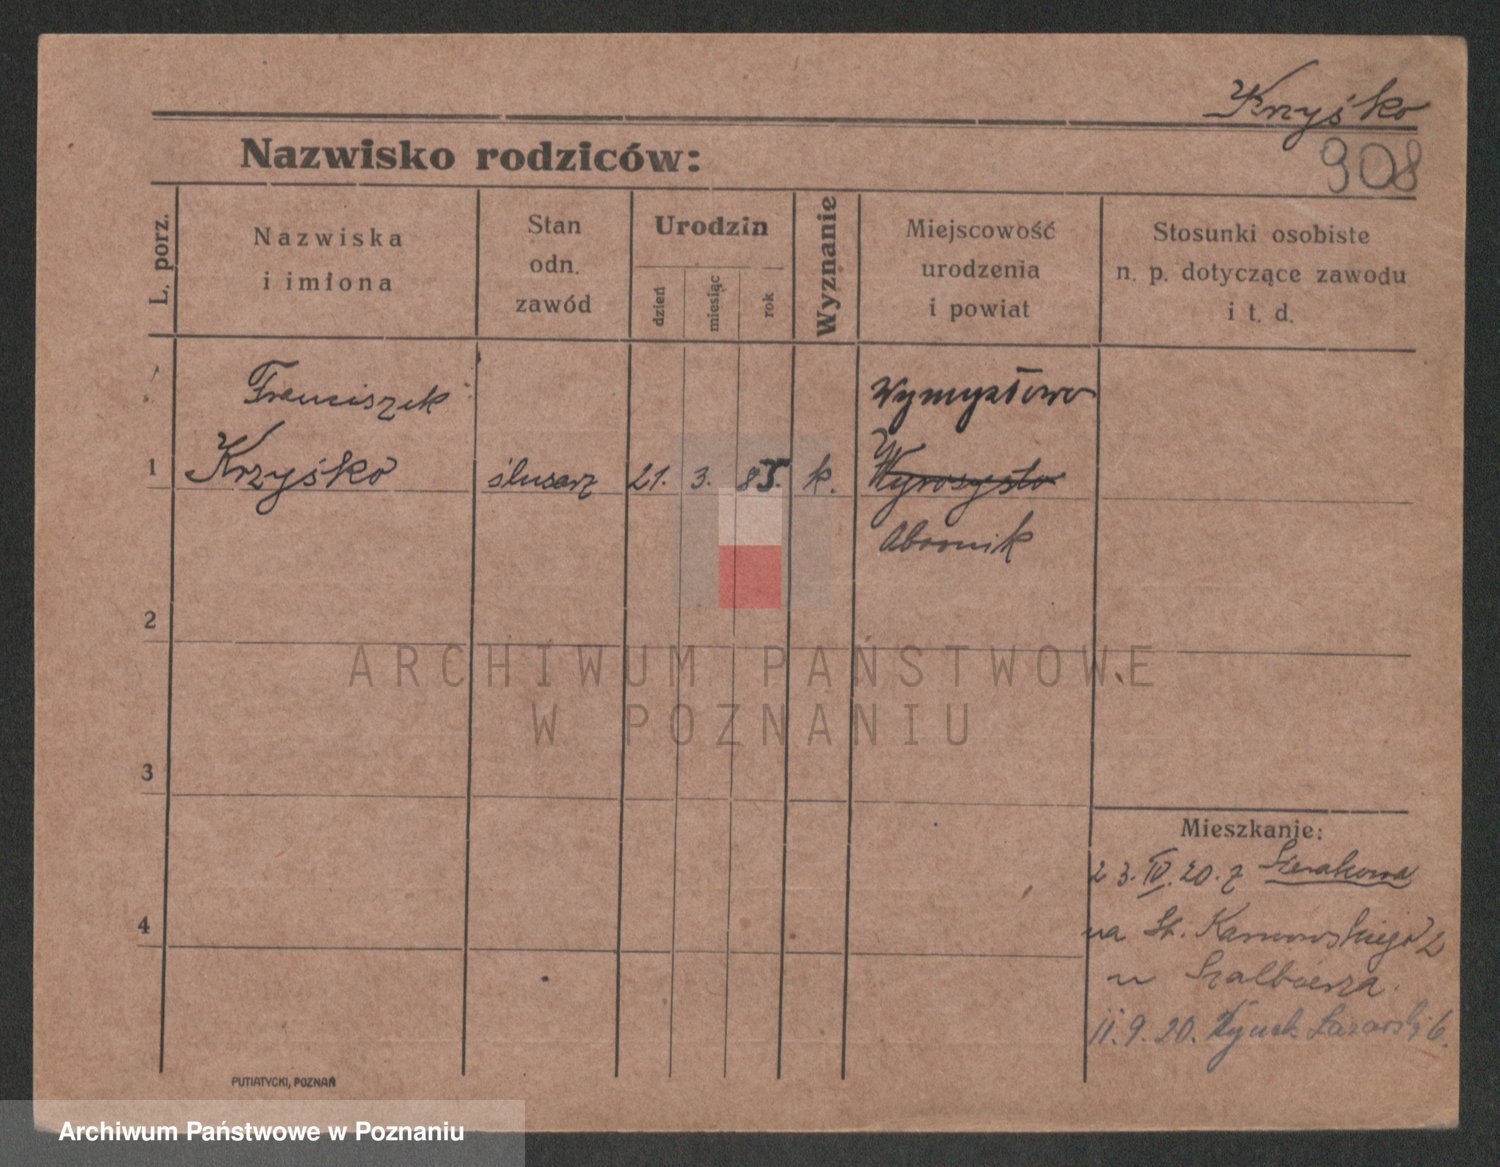 Krzyśko
908
Nazwisko rodziców:
L. porz.
Nazwiska
i imiona
Stan
odn.
zawód
Urodzin
dzień
miesiąc
rok
Wyznanie
Miejscowość
urodzenia
i powiat
Stosunki osobiste
n. p. dotyczące zawodu
i t. d.
Franciszek
Wymysłowo
1 Krzyśko ślusarz 21. 3. 85. k.
Obornik
2
ARCHIWUM PAŃSTWOWE
W POZNANIU
3
Mieszkanie:
23. IV. 20. z Sierakowa
4
na St. Karnowskiego 2
u Szalbierza.
11. 9. 20. Rynek Łazarski 6.
PUTIATYCKI, POZNAŃ
Archiwum Państwowe w Poznaniu